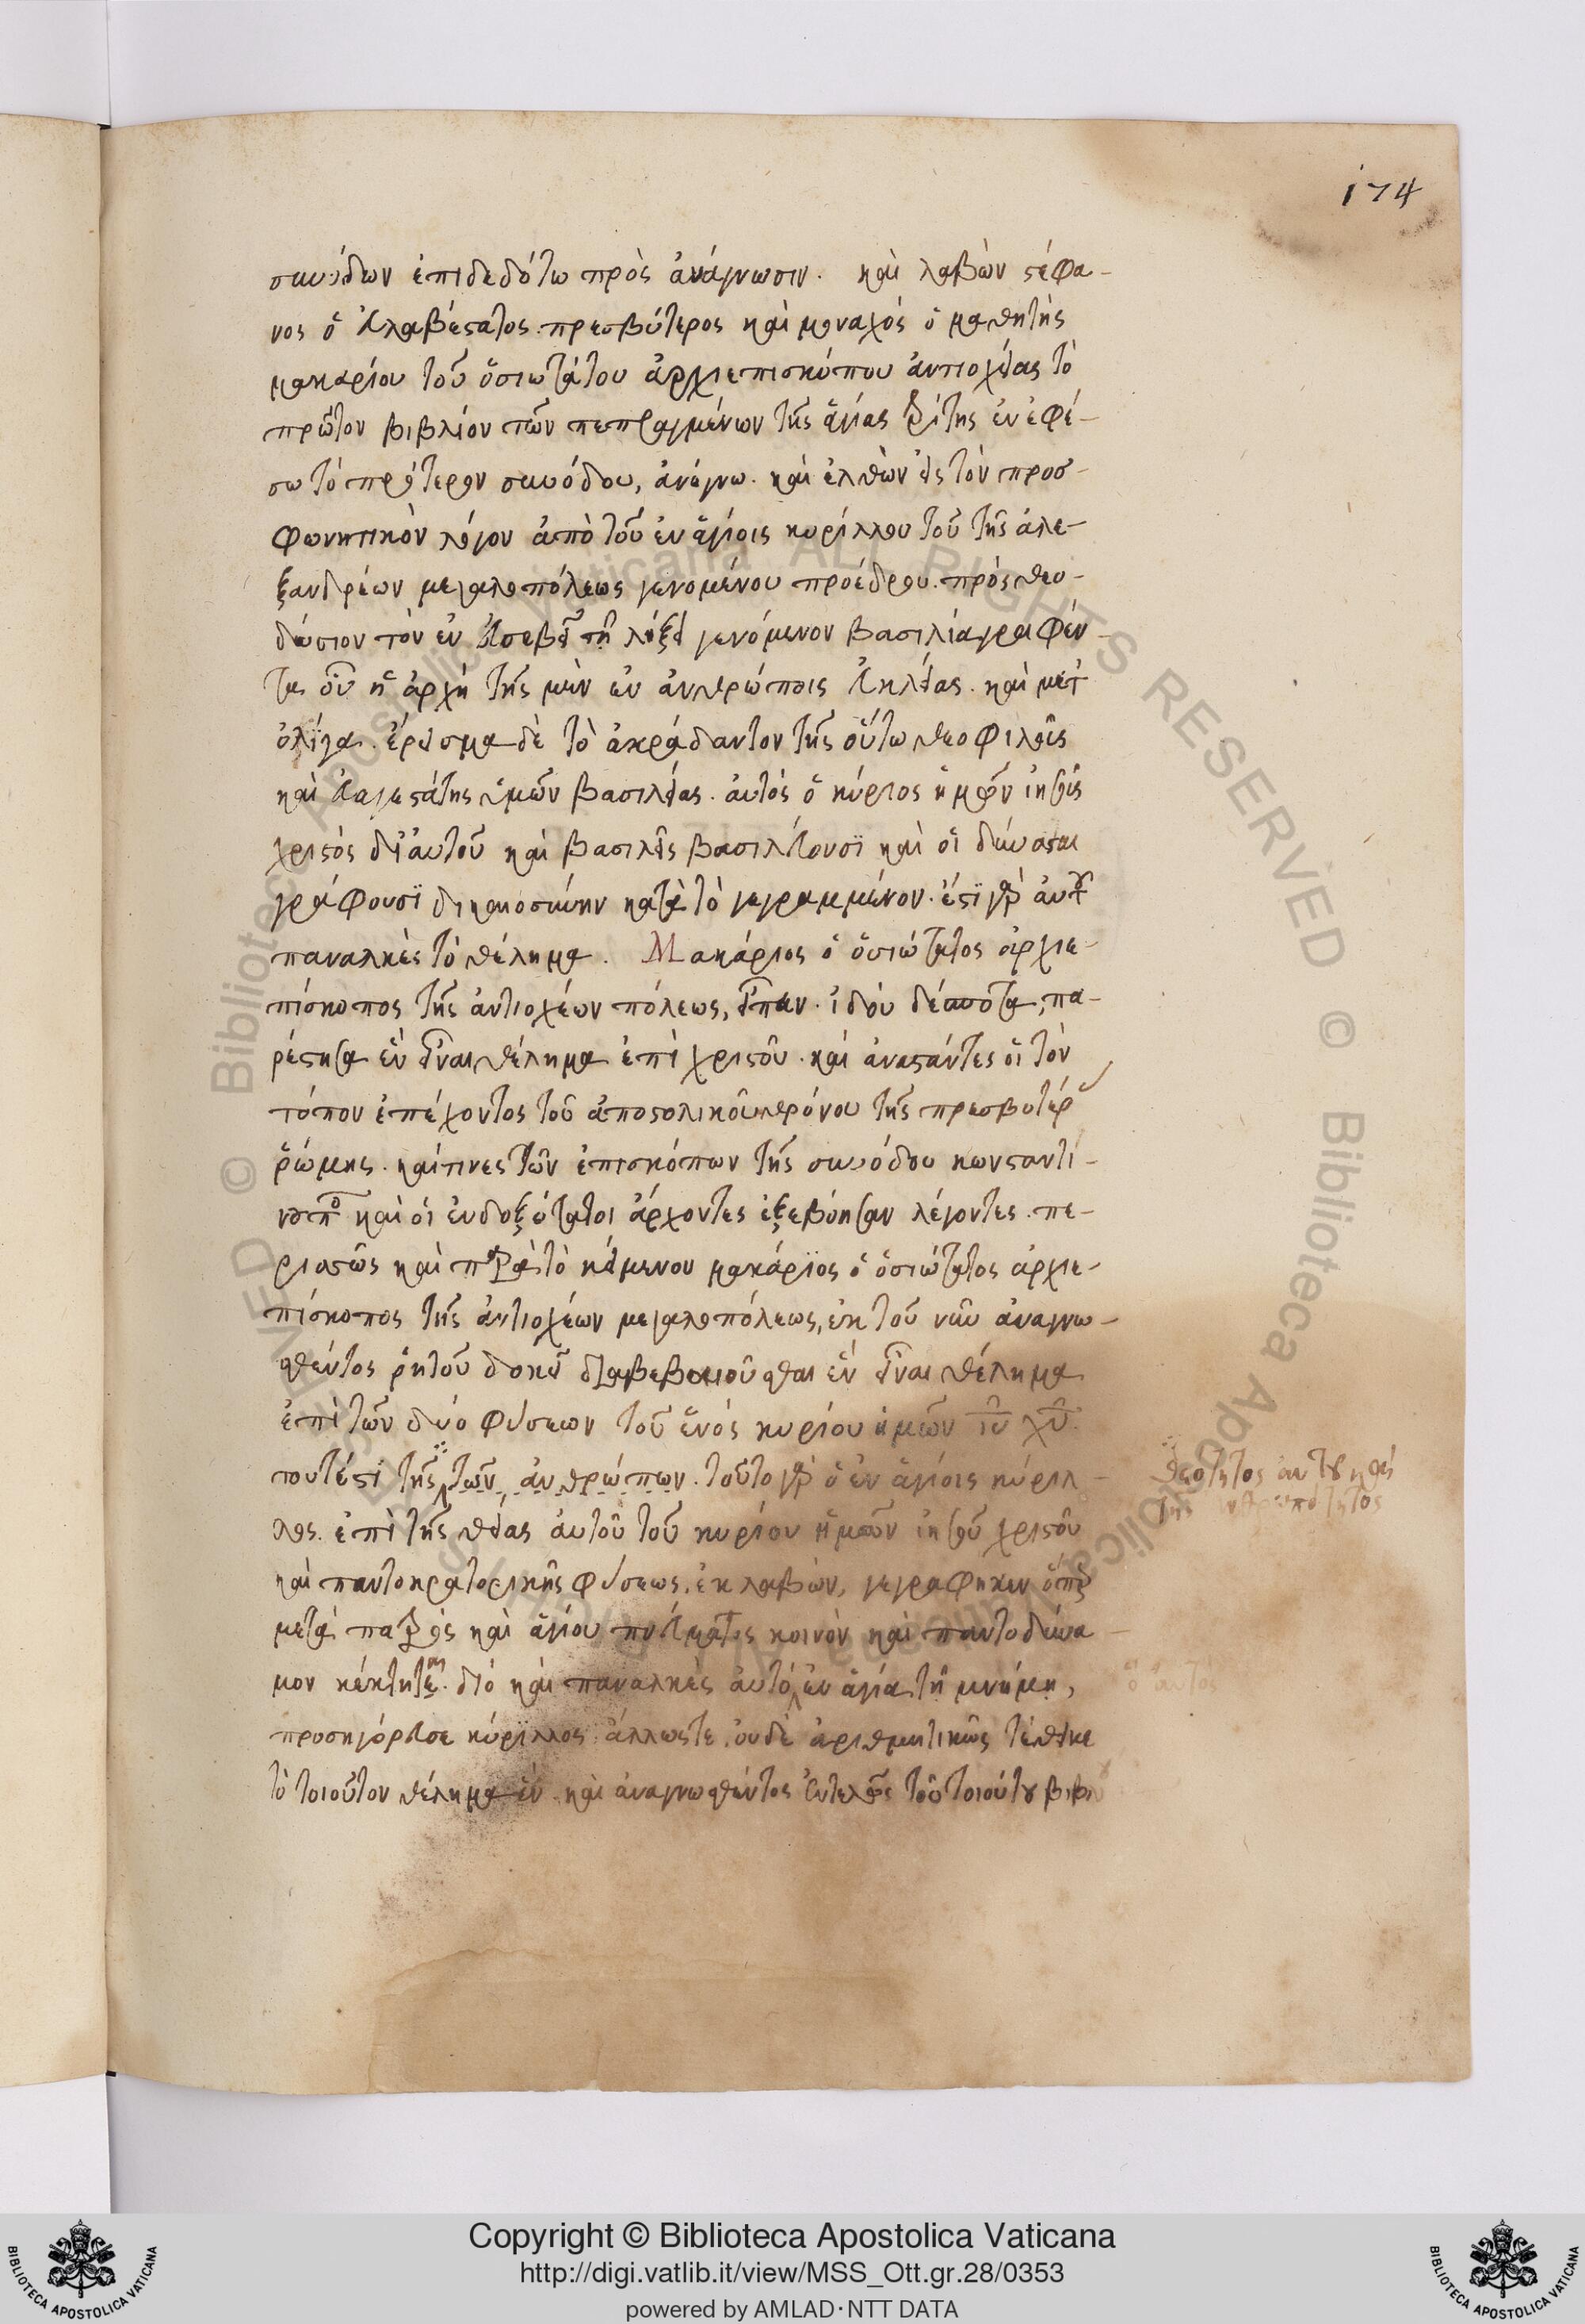 174
συνόδων ἐπιδεδότω πρὸς ἀνάγνωσιν. καὶ λαβὼν στέφα-
νος ὁ εὐλαβέστατος πρεσβύτερος καὶ μοναχὸς ὁ μαθητὴς
μακαρίου τοῦ ὁσιωτάτου ἀρχιεπισκόπου ἀντιοχείας τὸ
πρῶτον βιβλίον τῶν πεπραγμένων τῆς ἁγίας τρίτης ἐν ἐφέ-
σω τὸ πρότερον συνόδου, ἀνέγνω. καὶ ἐλθὼν εἰς τὸν προσ-
φωνητικὸν λόγον ἀπὸ τοῦ ἐν ἁγίοις κυρίλλου τοῦ τῆς ἀλε-
ξανδρέων μεγαλοπόλεως γενομένου προέδρου. πρὸς θεο-
δώσιον τὸν ἐν εὐσεβεῖ τῇ λήξει γενόμενον βασιλέα γραφέν-
τα οὗ ἡ ἀρχή τῆς μὲν ἐν ἀνθρώποις εὐκλείας. καὶ μετ
ὀλίγα. ἔρεισμα δὲ τὸ ἀκράδαντον τῆς οὕτω θεοφιλοῦς
καὶ εὐαγεστάτης ὑμῶν βασιλείας. αὐτὸς ὁ κύριος ἡμῶν ἰησοῦς
χριστὸς δι αὐτοῦ καὶ βασιλεῖς βασιλεύουσϊ καὶ οἱ δυνάσται
γράφουσϊ δικαιοσύνην κατὰ τὸ γεγραμμένον. ἔστϊ γὰρ αὐτοῦ
παναλκὲς τὸ θέλημα. Μακάριος ὁ ὁσιώτατος ἀρχιε-
πίσκοπος τῆς ἀντιοχέων πόλεως, εἶπεν. ἰδού δέσποτα, πα-
ρέστησα ἓν εἶναι θέλημα ἐπὶ χριστοῦ. καὶ ἀναστάντες οἱ τὸν
τόπον ἐπέχοντος τοῦ ἀποστολικοῦ θρόνου τῆς πρεσβυτέρου
ῥώμης. καί τινες τῶν ἐπισκόπων τῆς συνόδου κωνσταντι-
νουπο καὶ οἱ ἐνδοξότατοι ἄρχοντες ἐξεβόησαν λέγοντες. πε-
ρισσῶς καὶ παρὰ τὸ κείμενον μακάρϊος ὁ ὁσιώτατος ἀρχιε-
πίσκοπος τῆς ἀντιοχέων μεγαλοπόλεως, ἐκ τοῦ νῦν ἀναγνω-
σθέντος ῥητοῦ δοκεῖ διαβεβαιοῦσθαι ἓν εἶναι θέλημα
ἐπὶ τῶν δύο φύσεων τοῦ ἑνὸς κυρίου ἡμῶν ἰυ χυ.
τουτέστϊ τῆς τῶν ἀνθρώπων. τοῦτο γὰρ ὁ ἐν ἁγίοις κύριλ-
λος. ἐπὶ τῆς θείας αὐτοῦ τοῦ κυρίου ἡμῶν ἰησοῦ χριστοῦ
καὶ παντοκρατορικῆς φύσεως ἐκλαβὼν, γεγράφηκεν ὅπερ
μετὰ πατρὸς καὶ ἁγίου πνεύματος κοινὸν καὶ παντοδύνα-
μον κέκτηται. διὸ καὶ παναλκὲς αὐτὸ ἐν ἁγίᾳ τῇ μνήμῃ,
προσηγόρευσε κύρϊλλος. ἄλλωστε οὐδὲ ἀριθμητικῶς τέθεικε
τὸ τοιοῦτον θέλημα ἓν. καὶ ἀναγνωσθέντος ἐντελῶς τοῦ τοιούτου βιβλ
θεότητος αυτου καὶ
τῆς ἀνθρωπότητος
ὁ αὐτὸς
Copyright © Biblioteca Apostolica Vaticana
http://digi.vatlib.it/view/MSS_Ott.gr.28/0353
powered by AMLAD·NTT DATA
BIBLIOTECA APOSTOLICA VATICANA
BIBLIOTECA APOSTOLICA VATICANA